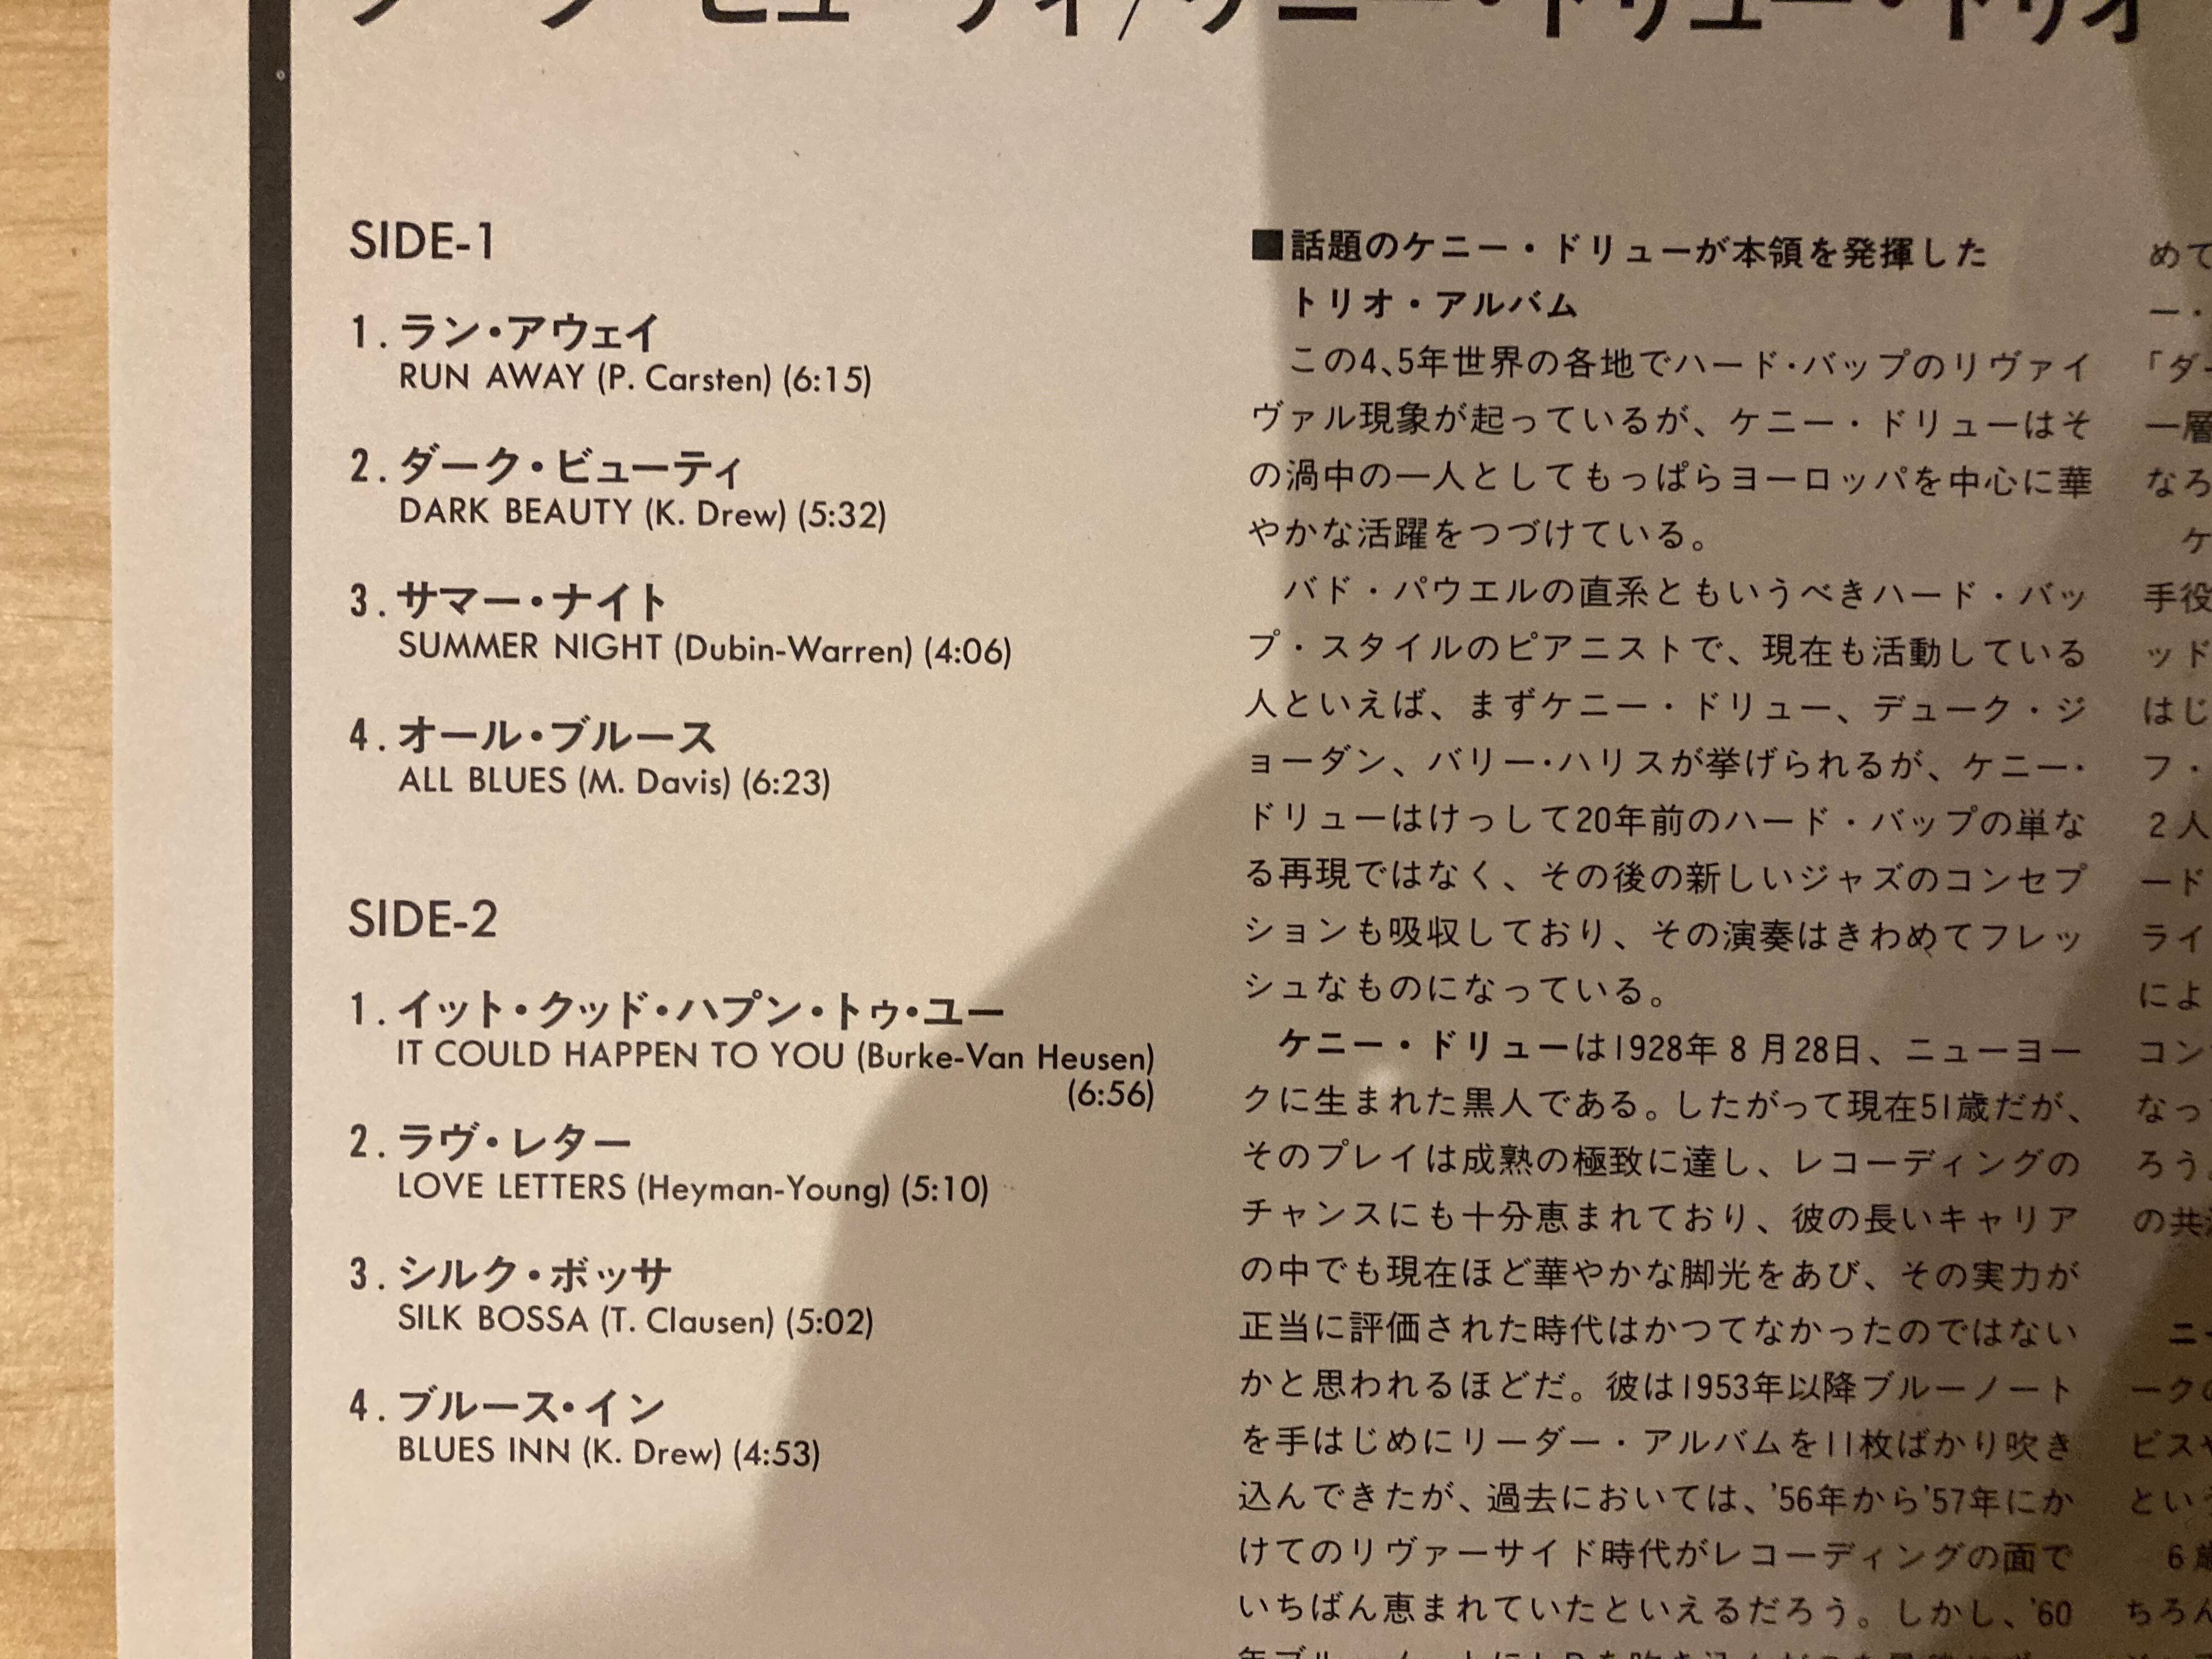 ダーク・ビューティ/ケニー・ドリュー・トリオ
SIDE-1
1. ラン・アウェイ
RUN AWAY (P. Carsten) (6:15)
2. ダーク・ビューティ
DARK BEAUTY (K. Drew) (5:32)
3. サマー・ナイト
SUMMER NIGHT (Dubin-Warren) (4:06)
4. オール・ブルース
ALL BLUES (M. Davis) (6:23)
SIDE-2
1. イット・クッド・ハプン・トゥ・ユー
IT COULD HAPPEN TO YOU (Burke-Van Heusen)
(6:56)
2. ラヴ・レター
LOVE LETTERS (Heyman-Young) (5:10)
3. シルク・ボッサ
SILK BOSSA (T. Clausen) (5:02)
4. ブルース・イン
BLUES INN (K. Drew) (4:53)
■話題のケニー・ドリューが本領を発揮した
トリオ・アルバム
この4、5年世界の各地でハード・バップのリヴァイ
ヴァル現象が起っているが、ケニー・ドリューはそ
の渦中の一人としてもっぱらヨーロッパを中心に華
やかな活躍をつづけている。
バド・パウエルの直系ともいうべきハード・バッ
プ・スタイルのピアニストで、現在も活動している
人といえば、まずケニー・ドリュー、デューク・ジ
ョーダン、バリー・ハリスが挙げられるが、ケニー・
ドリューはけっして20年前のハード・バップの単な
る再現ではなく、その後の新しいジャズのコンセプ
ションも吸収しており、その演奏はきわめてフレッ
シュなものになっている。
ケニー・ドリューは1928年8月28日、ニューヨー
クに生まれた黒人である。したがって現在51歳だが、
そのプレイは成熟の極致に達し、レコーディングの
チャンスにも十分恵まれており、彼の長いキャリア
の中でも現在ほど華やかな脚光をあび、その実力が
正当に評価された時代はかつてなかったのではない
かと思われるほどだ。彼は1953年以降ブルーノート
を手はじめにリーダー・アルバムを11枚ばかり吹き
込んできたが、過去においては、'56年から'57年にか
けてのリヴァーサイド時代がレコーディングの面で
いちばん恵まれていたといえるだろう。しかし、'60
めて
ー・
「ダー
一層
なろ
ケ
手役
ッド
はじ
フ・
2人
ード
ライ
によ
コン
なっ
ろう。
の共
ニー
ークの
ピス
とい
6歳
ちろん